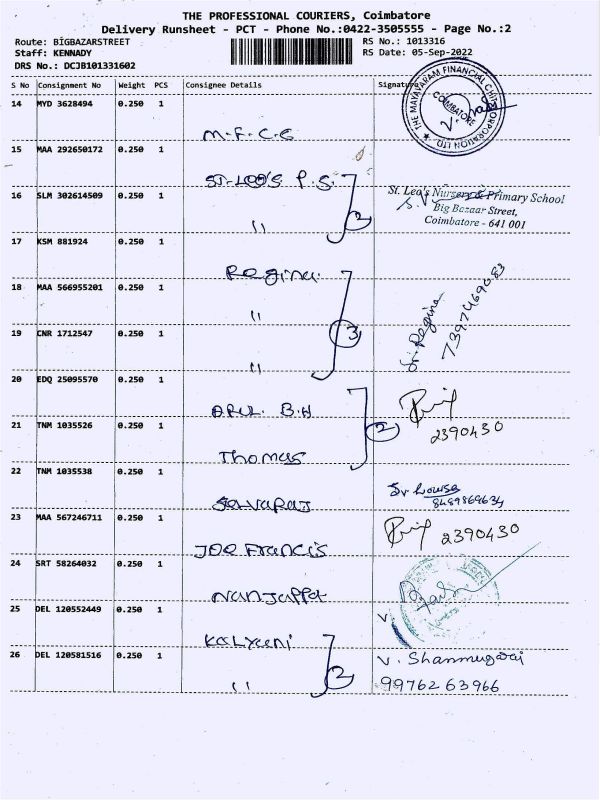 THE PROFESSIONAL COURIERS, Coimbatore
Delivery Runsheet - PCT - Phone No.:0422-3505555 - Page No.:2
Route: BIGBAZARSTREET
RS No.: 1013316
Staff: KENNADY
RS Date: 05-Sep-2022
DRS No.: DCJB101331602
S No Consignment No Weight PCS Consignee Details Signature
THE MAYAVARAM FINANCIAL CHIT CORPORATION LTD. COIMBATORE
14 MYD 3628494 0.250 1
M.F.C.C
15 MAA 292650172 0.250 1
ST-LEO'S P.S.
16 SLM 302614509 0.250 1
" 2
St. Leo's Nursery & Primary School
Big Bazaar Street,
Coimbatore - 641 001
17 KSM 881924 0.250 1
Regina
18 MAA 566955201 0.250 1
"
19 CNR 1712547 0.250 1
" 3
Sr. Regina
7397469083
20 EDQ 25095570 0.250 1
ARUL. B.H
21 TNM 1035526 0.250 1
Thomas 2
2390430
22 TNM 1035538 0.250 1
Selvaraj
Sr Lowsa
8489869634
23 MAA 567246711 0.250 1
Joe Francis
2390430
24 SRT 58264032 0.250 1
Nanjappa
25 DEL 120552449 0.250 1
Kalyani
26 DEL 120581516 0.250 1
" 2
V. Shanmugaraj
99762 63966